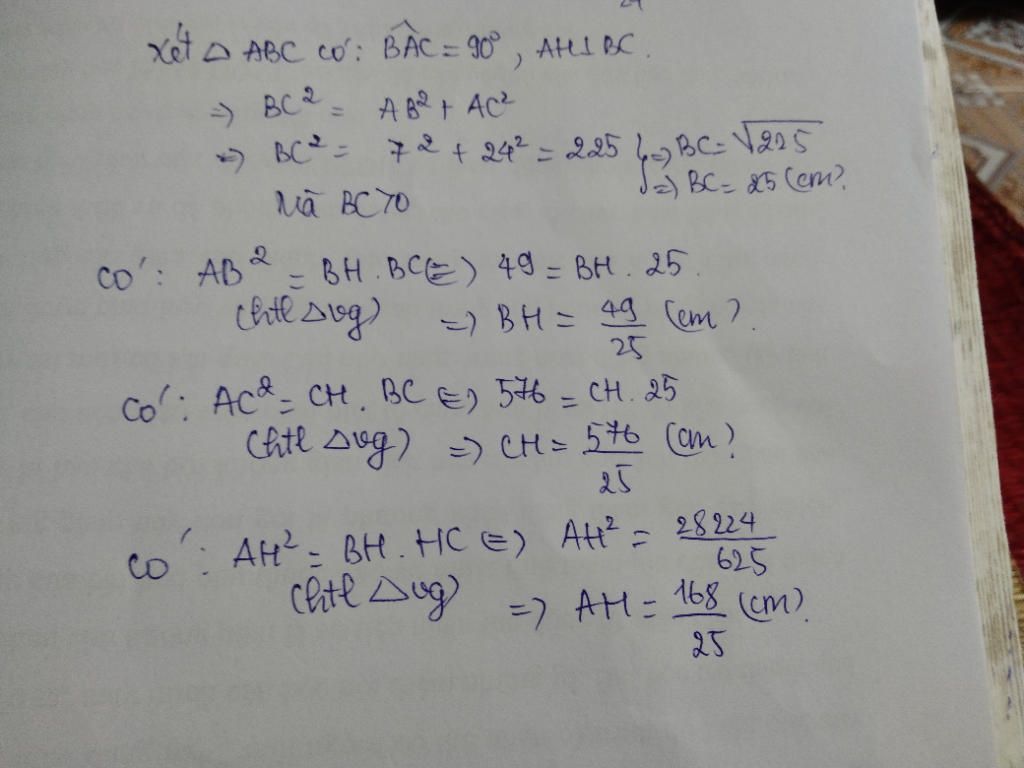 Xét △ ABC có: BÂC = 90°, AH⊥BC.
=> BC² = AB² + AC²
=> BC² = 7² + 24² = 225 } => BC = √225
Mà BC>0 => BC = 25 (cm).
Có: AB² = BH . BC <=> 49 = BH . 25.
(htl △vg) => BH = 49/25 (cm).
Có: AC² = CH . BC <=> 576 = CH . 25
(htl △vg) => CH = 576/25 (cm)
Có: AH² = BH . HC <=> AH² = 28224/625
(htl △vg) => AH = 168/25 (cm).